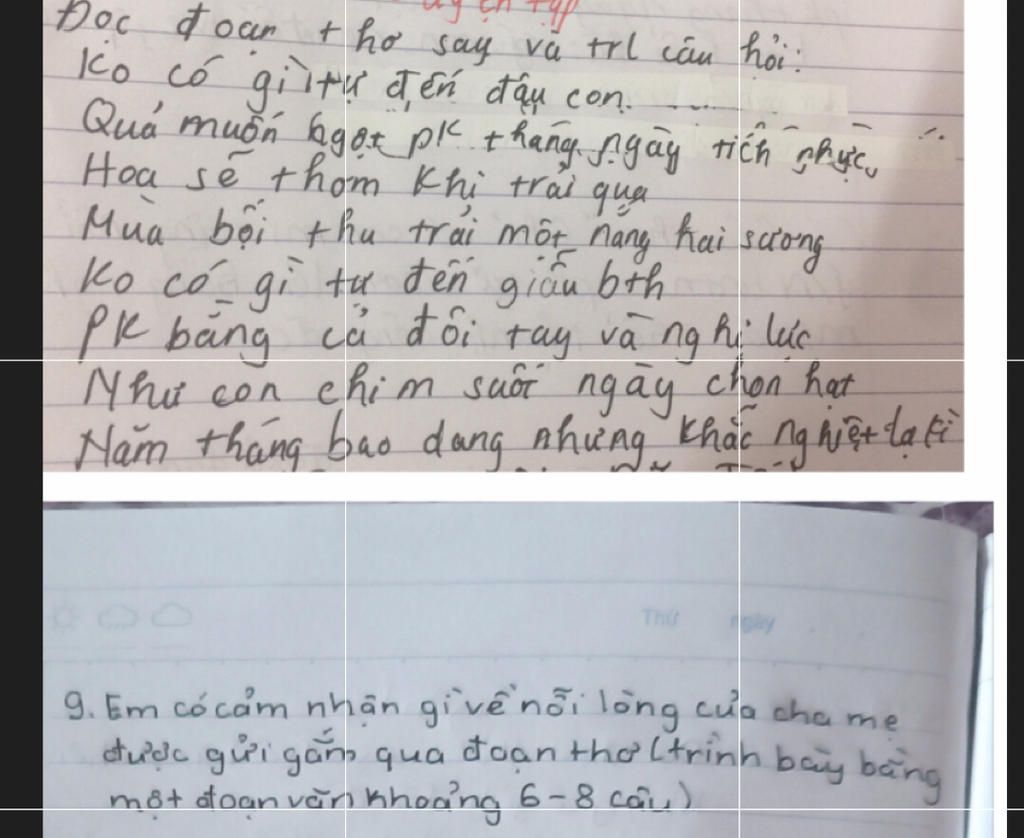 Đọc đoạn thơ say và trl câu hỏi:
Ko có gì tự đến đâu con.....
Quả muốn ngọt pk tháng ngày tích nhực,
Hoa sẽ thơm khi trải qua
Mùa bội thu trải một nắng hai sương
Ko có gì tự đến giẫu bth
PK bằng cả đôi tay và nghị lực
Như con chim suốt ngày chọn hạt
Năm tháng bao dung nhưng khắc nghiệt lạ kì
Thứ ngày
9. Em có cảm nhận gì về nỗi lòng của cha mẹ
được gửi gắm qua đoạn thơ (trình bày bằng
một đoạn văn khoảng 6-8 câu)